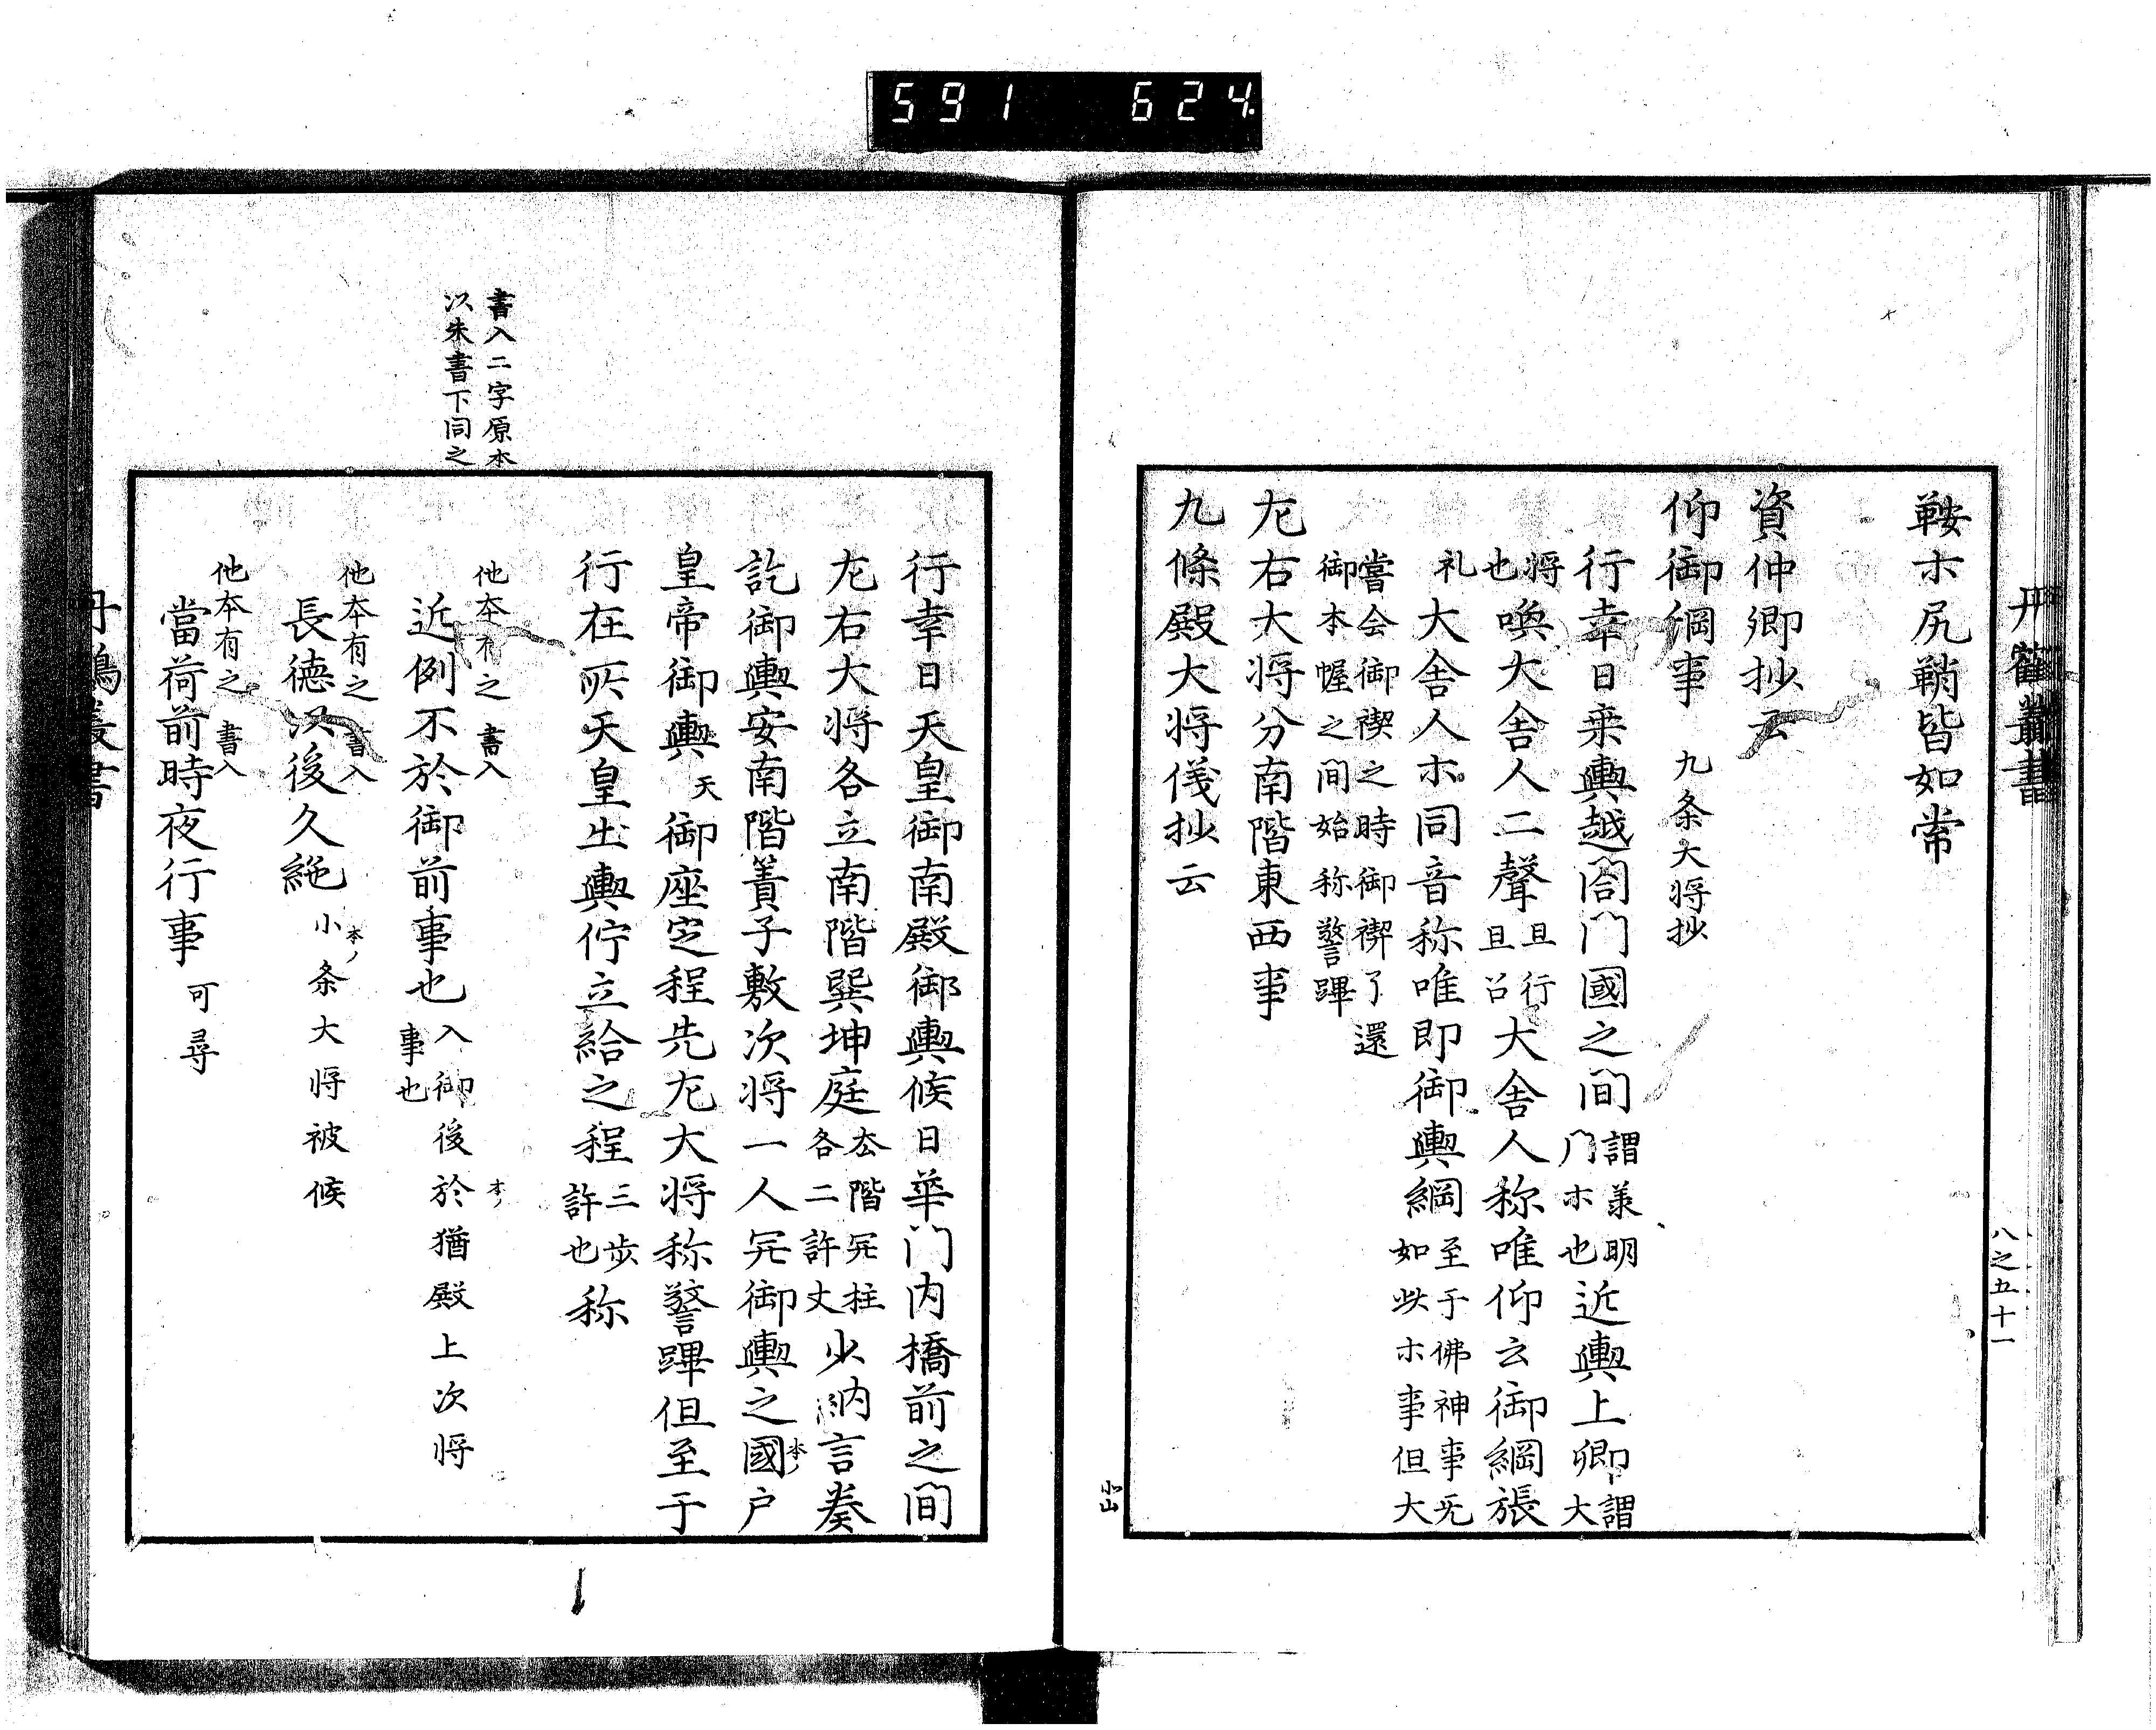 591 624
丹鶴叢書
八之五十一
鞍ホ尻鞘皆如常
資仲卿抄云
仰御綱事 九条大将抄
行幸日乗輿越閤门國之间謂羕明门ホ也近輿上卿謂大
将也喚大舎人二聲且行且召大舎人称唯仰云御綱張
礼大舎人ホ同音称唯即御輿綱至于佛神事旡如此ホ事但大
嘗会御禊之時御禊了還御本幄之间始称警蹕
九右大将分南階東西事
九條殿大将俴抄云
小山
書入二字原本
以朱書下同之
行幸日天皇御南殿御輿候日華门内橋前之间
九右大将各立南階巽坤庭去階𠒋柱各二許丈少納言奏
訖御輿安南階簀子敷次将一人𠒋御輿之國本ノ戸
皇帝御輿天御座定程先九大将称警蹕但至于
行在所天皇出輿佇立給之程三歩許也称
他本有之 書入
近例不於御前事也入御後於猶本ノ殿上次将事也
他本有之 書入
長徳以後久絶小本ノ条大将被候
他本有之 書入
當荷前時夜行事可尋
丹鶴叢書